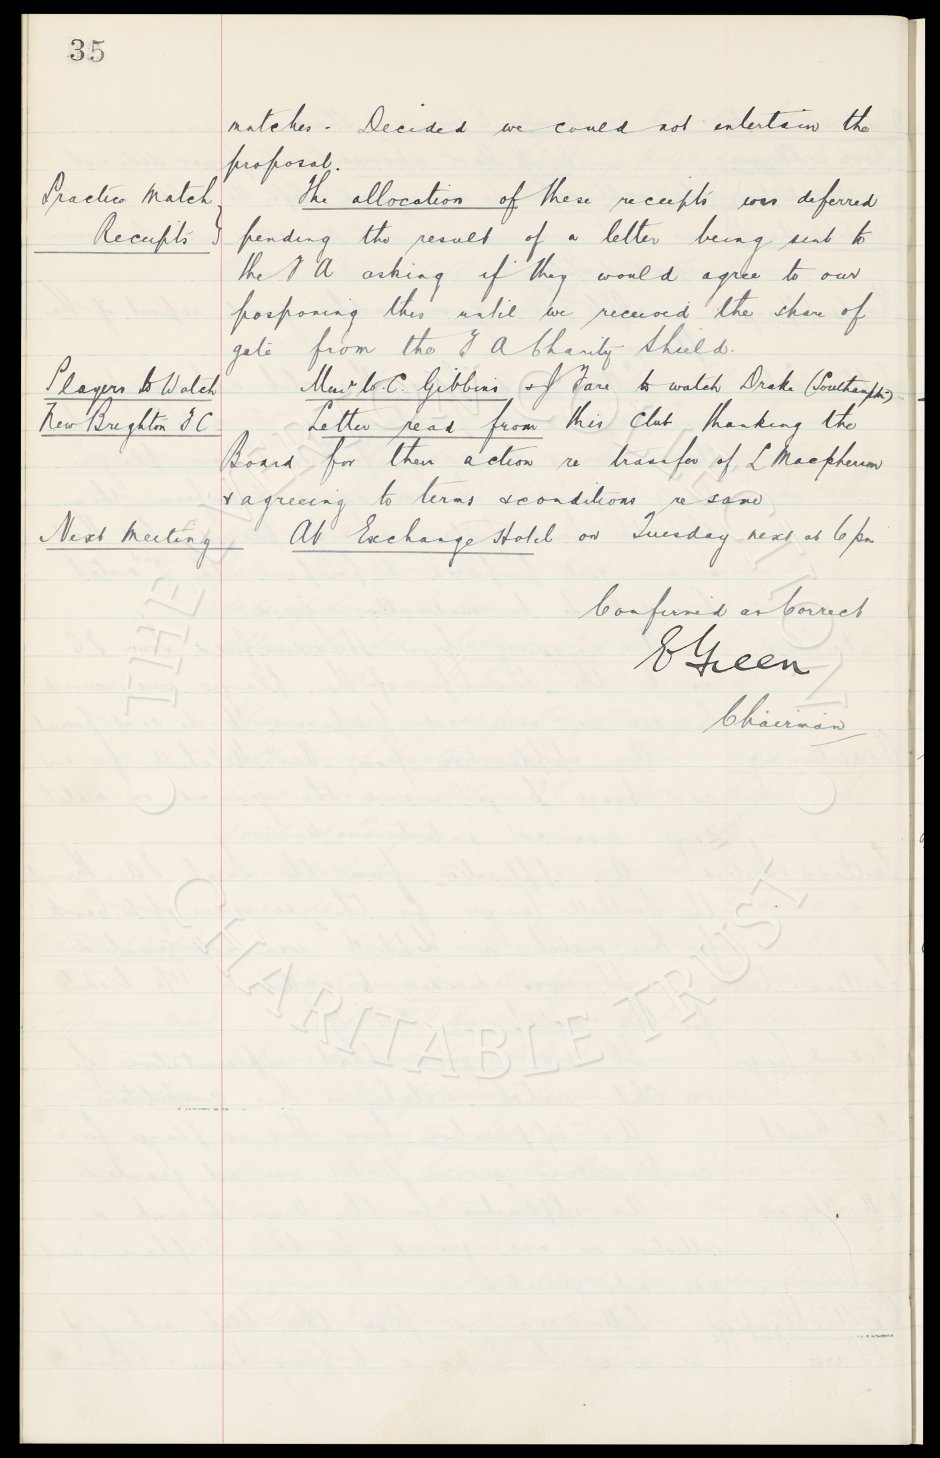 35
matches. Decided we could not entertain the
proposal.
Practice Match The allocation of these receipts was deferred
Receipts } pending the result of a letter being sent to
the F A asking if they would agree to our
posponing this until we received the share of
gate from the F A Charity Shield.
Players to Watch W. C. Gibbins & J Fare to watch Drake (Southampton)
New Brighton F C Letter read from this Club thanking the
Board for their action re transfer of L Macpherson
& agreeing to terms & conditions re same
Next Meeting At Exchange Hotel on Tuesday next at 6 pm
Confirmed as Correct
E Green
Chairman
THE EVERTON COLLECTION
CHARITABLE TRUST